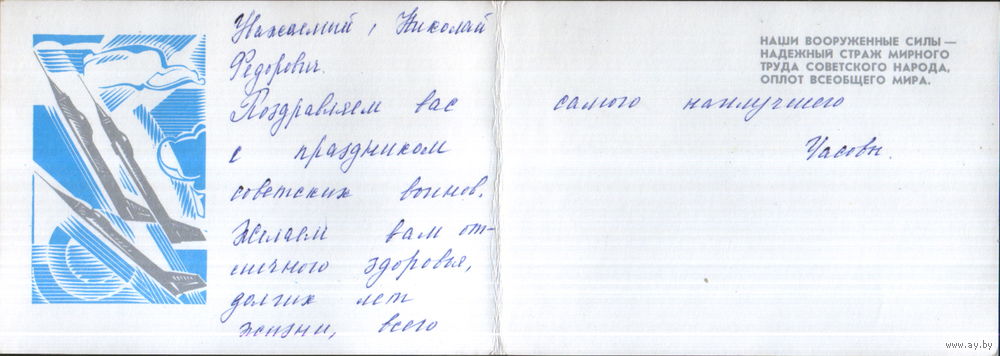 Уважаемый, Николай
Федорович.
Поздравляем вас
с праздником
советских воинов.
Желаем вам от-
личного здоровья,
долгих лет
жизни, всего
НАШИ ВООРУЖЕННЫЕ СИЛЫ —
НАДЕЖНЫЙ СТРАЖ МИРНОГО
ТРУДА СОВЕТСКОГО НАРОДА,
ОПЛОТ ВСЕОБЩЕГО МИРА.
самого наилучшего
Часовы.
www.ay.by